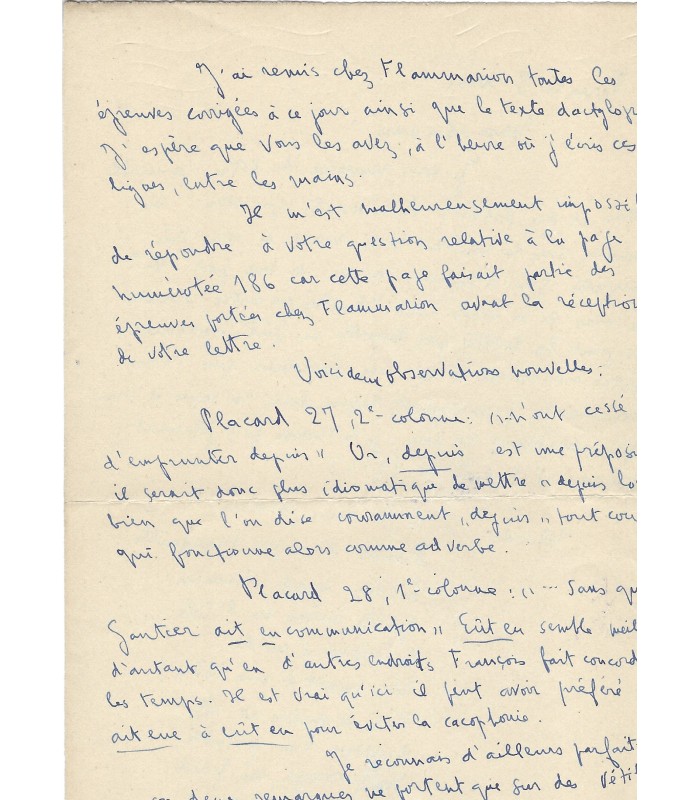 J'ai remis chez Flammarion toutes les
épreuves corrigées à ce jour ainsi que le texte dactylogr
J'espère que vous les avez, à l'heure où j'écris ces
lignes, entre les mains.
Il m'est malheureusement impossi
de répondre à votre question relative à la page
numérotée 186 car cette page faisait partie des
épreuves portées chez Flammarion avant la réception
de votre lettre.
Voici deux observations nouvelles :
Placard 27, 2e colonne : "-n'ont cessé
d'emprunter depuis" Or, depuis est une préposi
il serait donc plus idiomatique de mettre "depuis lo
bien que l'on dise couramment "depuis" tout cou
qui fonctionne alors comme adverbe.
Placard 28, 1e colonne : "--- Sans qu
Gautier ait eu communication" Eût eu semble meil
d'autant qu'en d'autres endroits François fait concord
les temps. Il est vrai qu'ici il peut avoir préféré
ait eue à eût eu pour éviter la cacophonie.
Je reconnais d'ailleurs parfait
deux remarques ne portent que sur des vétil